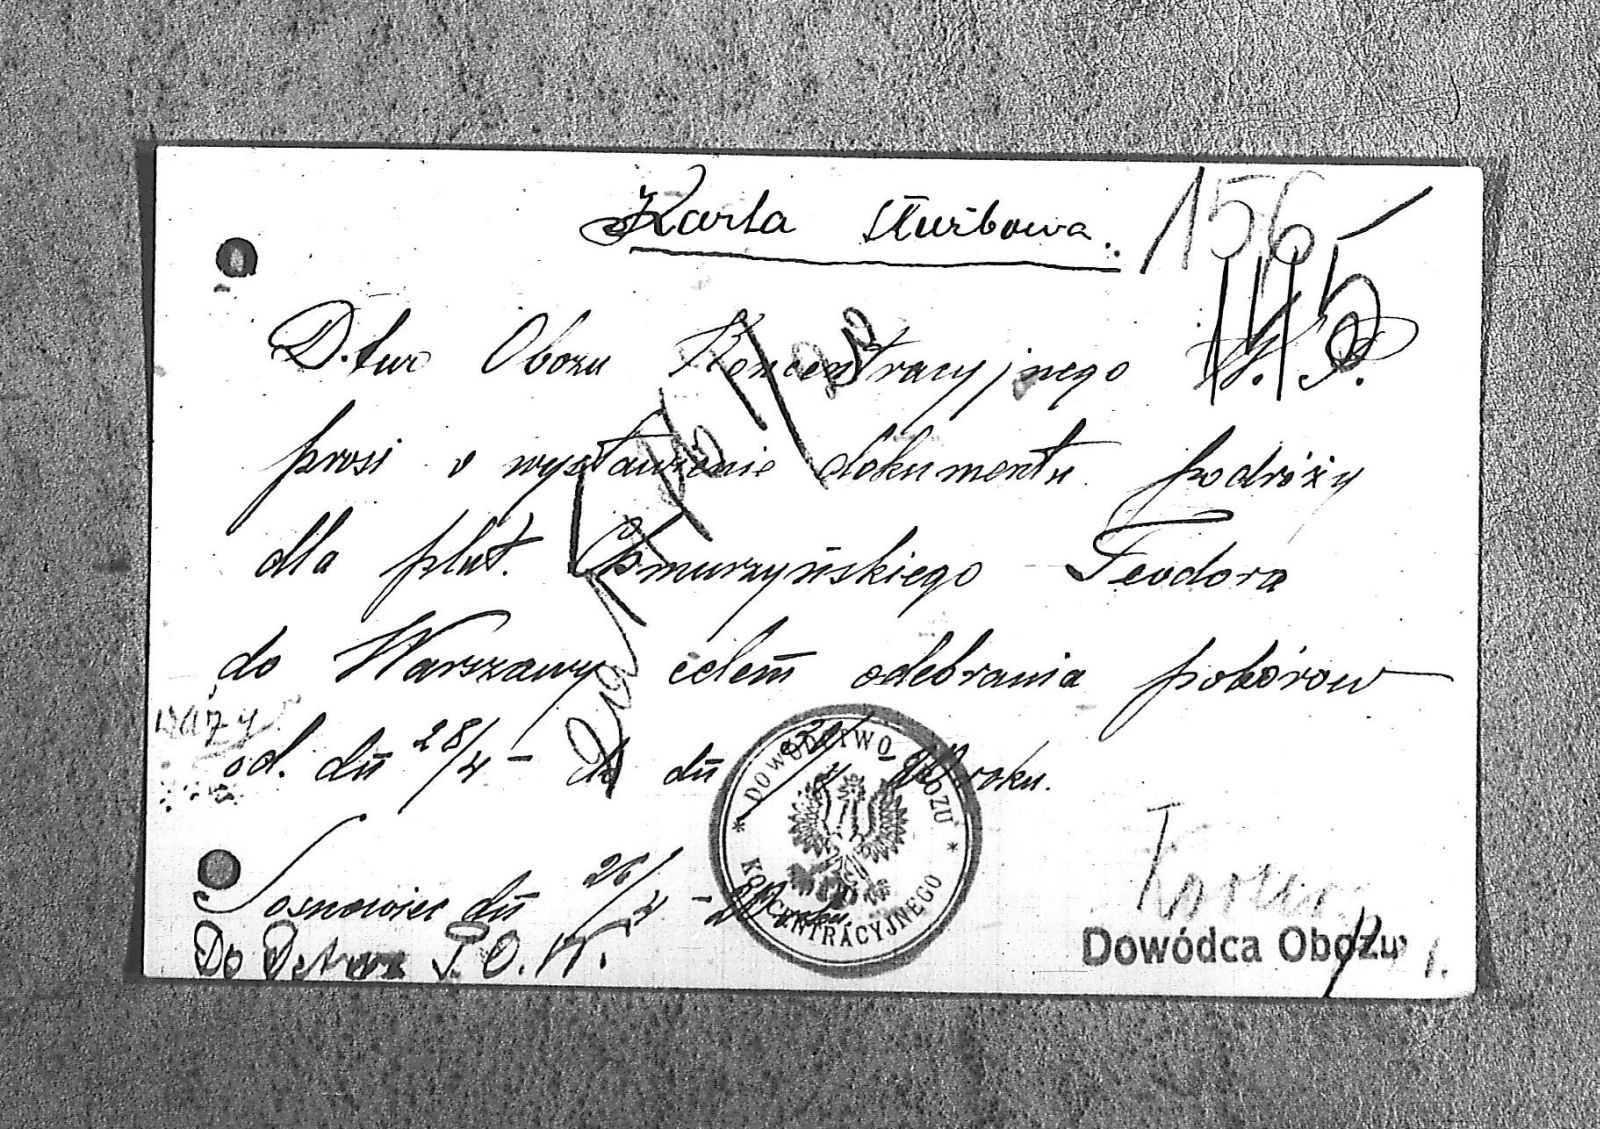 Karta służbowa.
156
D-two Obozu Koncentracyjnego W. P.
prosi o wystawienie dokumentu podróży
dla plut. Chmurzyńskiego Teodora
do Warszawy celem odebrania poborow
od. dn 28/4 - dn roku.
DOWÓDZTWO OBOZU
KONCENTRACYJNEGO
Sosnowiec dn 26/4 - 20
Do D-twa P. O. W.
Dowódca Obozu